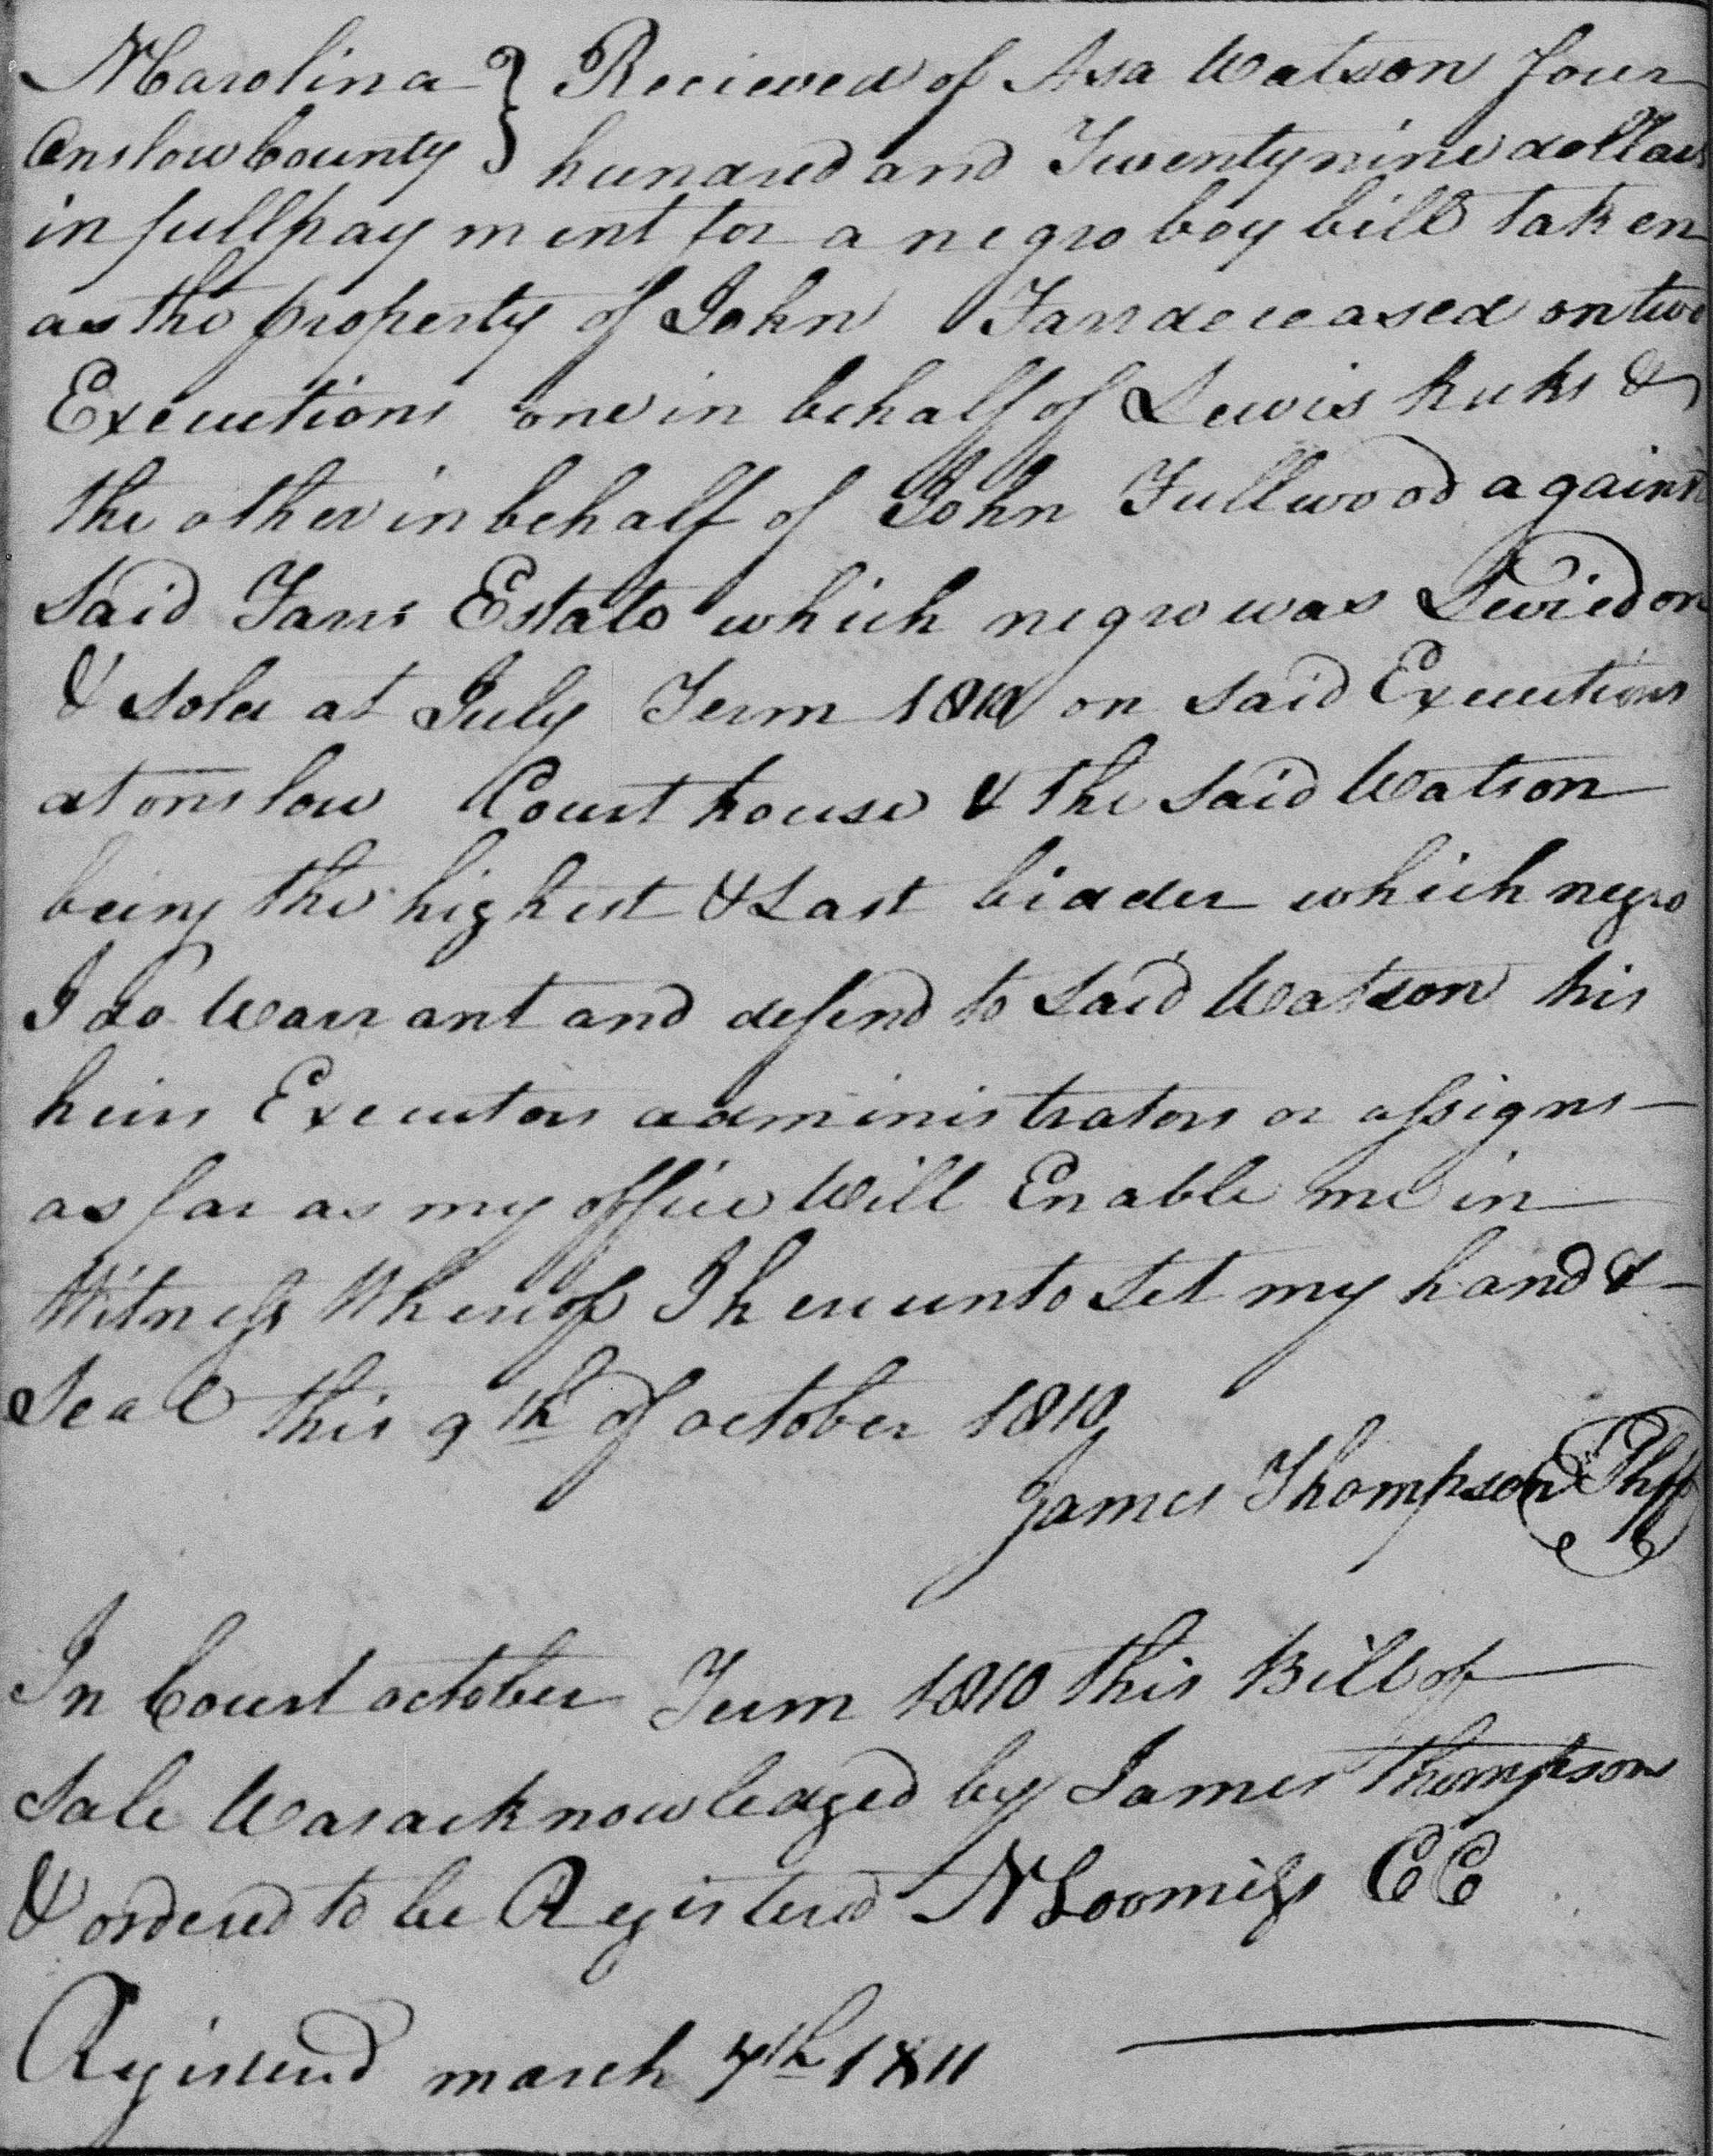 N Carolina } Recieved of Asa Watson four
Onslow County } hundred and Twentynine dollars
in full payment for a negro boy bill taken
as the property of John Farr deceased on two
Executions one in behalf of Lewis &
the other in behalf of John Fullwood against
Said Farrs Estate which negro was Levied on
& Sold at July Term 1810 on said Executions
at onslow Court house & the Said Watson
being the highest & Last bidder which negro
I do Warrant and defend to Said Watson his
heirs Executors administrators or assigns —
as far as my office Will Enable me in
Witness Whereof I hereunto Set my hand & —
Seal this 9th of october 1810
James Thompson Shff
In Court october Term 1810 this Bill of
Sale Was acknowledged by James Thompson
& ordered to be Registered N Loomiss CC
Registered march 7th 1811